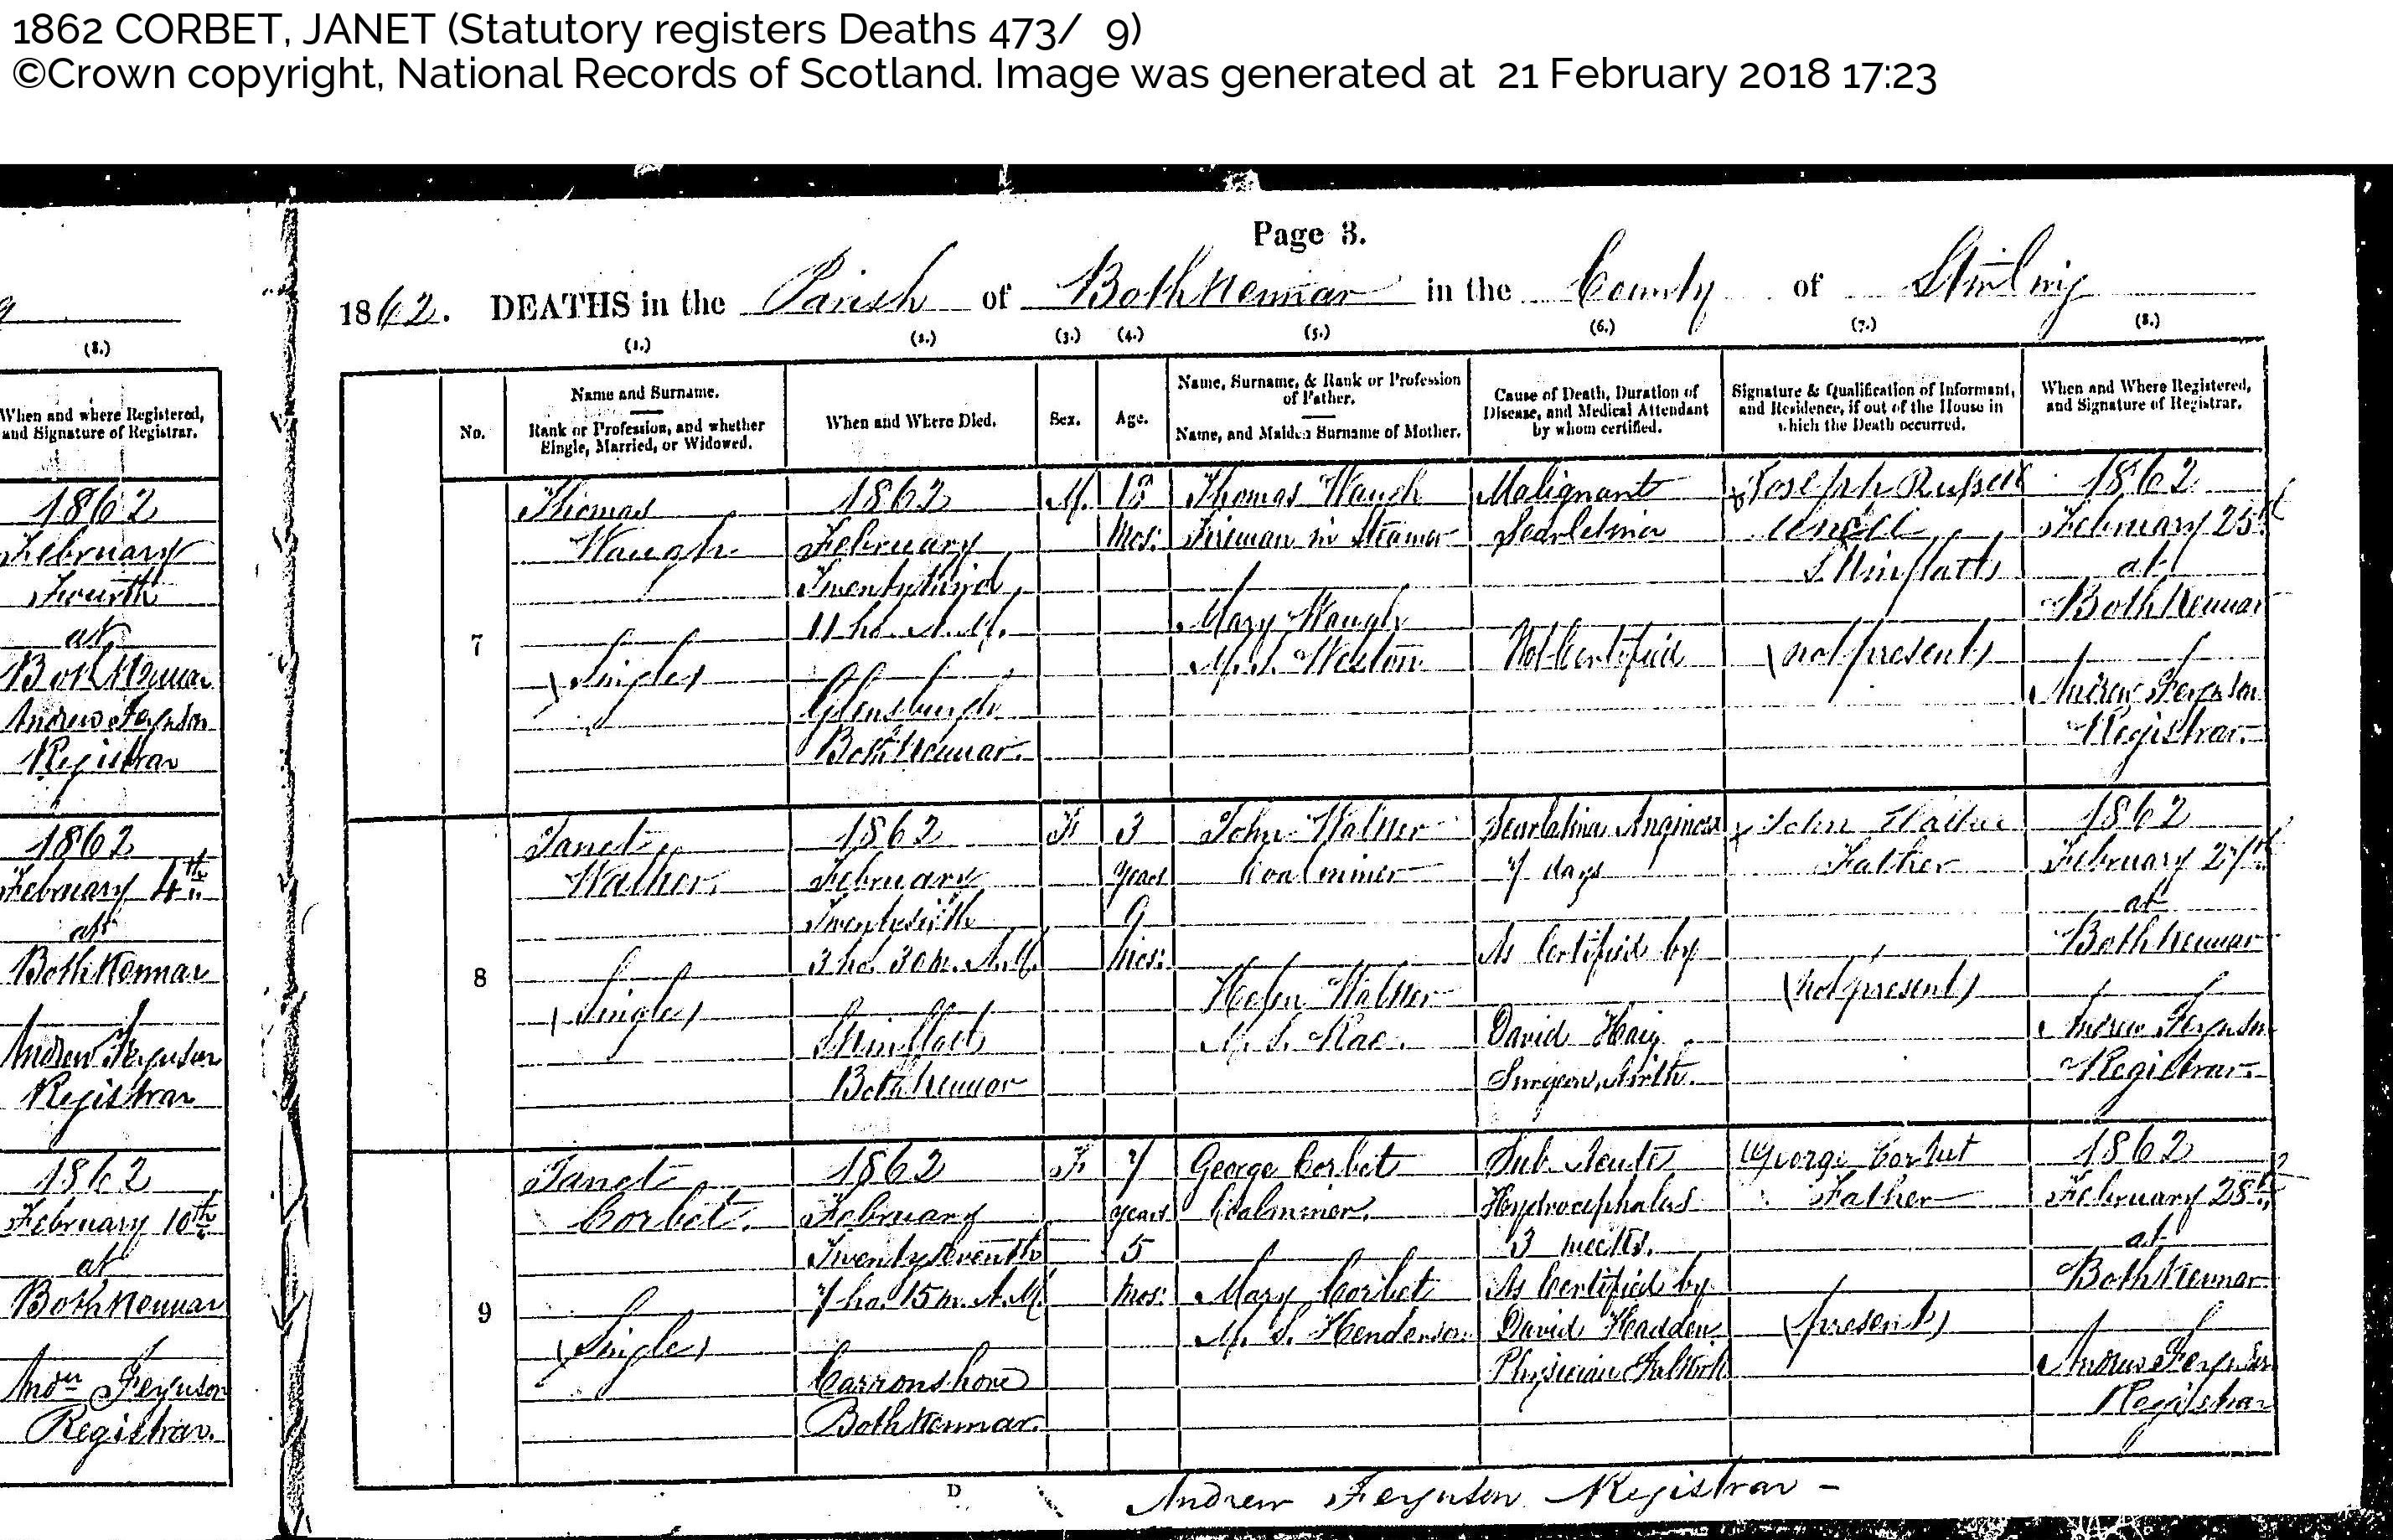 1862 CORBET, JANET (Statutory registers Deaths 473/ 9)
©Crown copyright, National Records of Scotland. Image was generated at 21 February 2018 17:23
(8.)
When and where Registered,
and Signature of Registrar.
1862
February
Fourth
at
Bothkennar
Andrew Ferguson
Registrar
1862
February 4th
at
Bothkennar
Andrew Ferguson
Registrar
1862
February 10th
at
Bothkennar
Andw Ferguson
Registrar.
Page 3.
1862. DEATHS in the Parish of Bothkennar in the County of Stirling
(1.) (2.) (3.) (4.) (5.) (6.) (7.) (8.)
No.
Name and Surname.
Rank or Profession, and whether
Single, Married, or Widowed.
When and Where Died.
Sex.
Age.
Name, Surname, & Rank or Profession
of Father.
Name, and Maiden Surname of Mother.
Cause of Death, Duration of
Disease, and Medical Attendant
by whom certified.
Signature & Qualification of Informant,
and Residence, if out of the House in
which the Death occurred.
When and Where Registered,
and Signature of Registrar.
7
Thomas
Waugh
(Single)
1862
February
Twentythird
11 ho. A.M.
Glensburgh
Bothkennar.
M.
18
Mos:
Thomas Waugh
Fireman in Steamer
Mary Waugh
M.S.
Malignant
Scarletina
Not Certified
Joseph Russell
Uncle
Skinflatts
(not present)
1862
February 25th
at
Bothkennar
Andrew Ferguson
Registrar.
8
Janet
Walker.
(Single)
1862
February
Twentysixth
3 ho. 30 m. A.M.
Skinflats
Bothkennar
F
3
years
9
Mos:
John Walker
Coalminer
Helen Walker
M.S. Rae.
Scarlatina Anginosa
7 days
As Certified by
David Haig
Surgeon, Airth.
x John Walker
Father
(not present)
1862
February 27th
at
Bothkennar
Andrew Ferguson
Registrar.
9
Janet
Corbet.
(Single)
1862
February
Twentyseventh
7 ho. 15 m. A.M.
Carronshore
Bothkennar.
F
7
years
5
Mos:
George Corbet
Coalminer.
Mary Corbet
M.S. Henderson
Sub Acute
Hydrocephalus
3 weeks.
As Certified by
David Hadden
Physician Falkirk
George Corbet
Father
(present)
1862
February 28th
at
Bothkennar
Andrew Ferguson
Registrar
D
Andrew Ferguson Registrar -